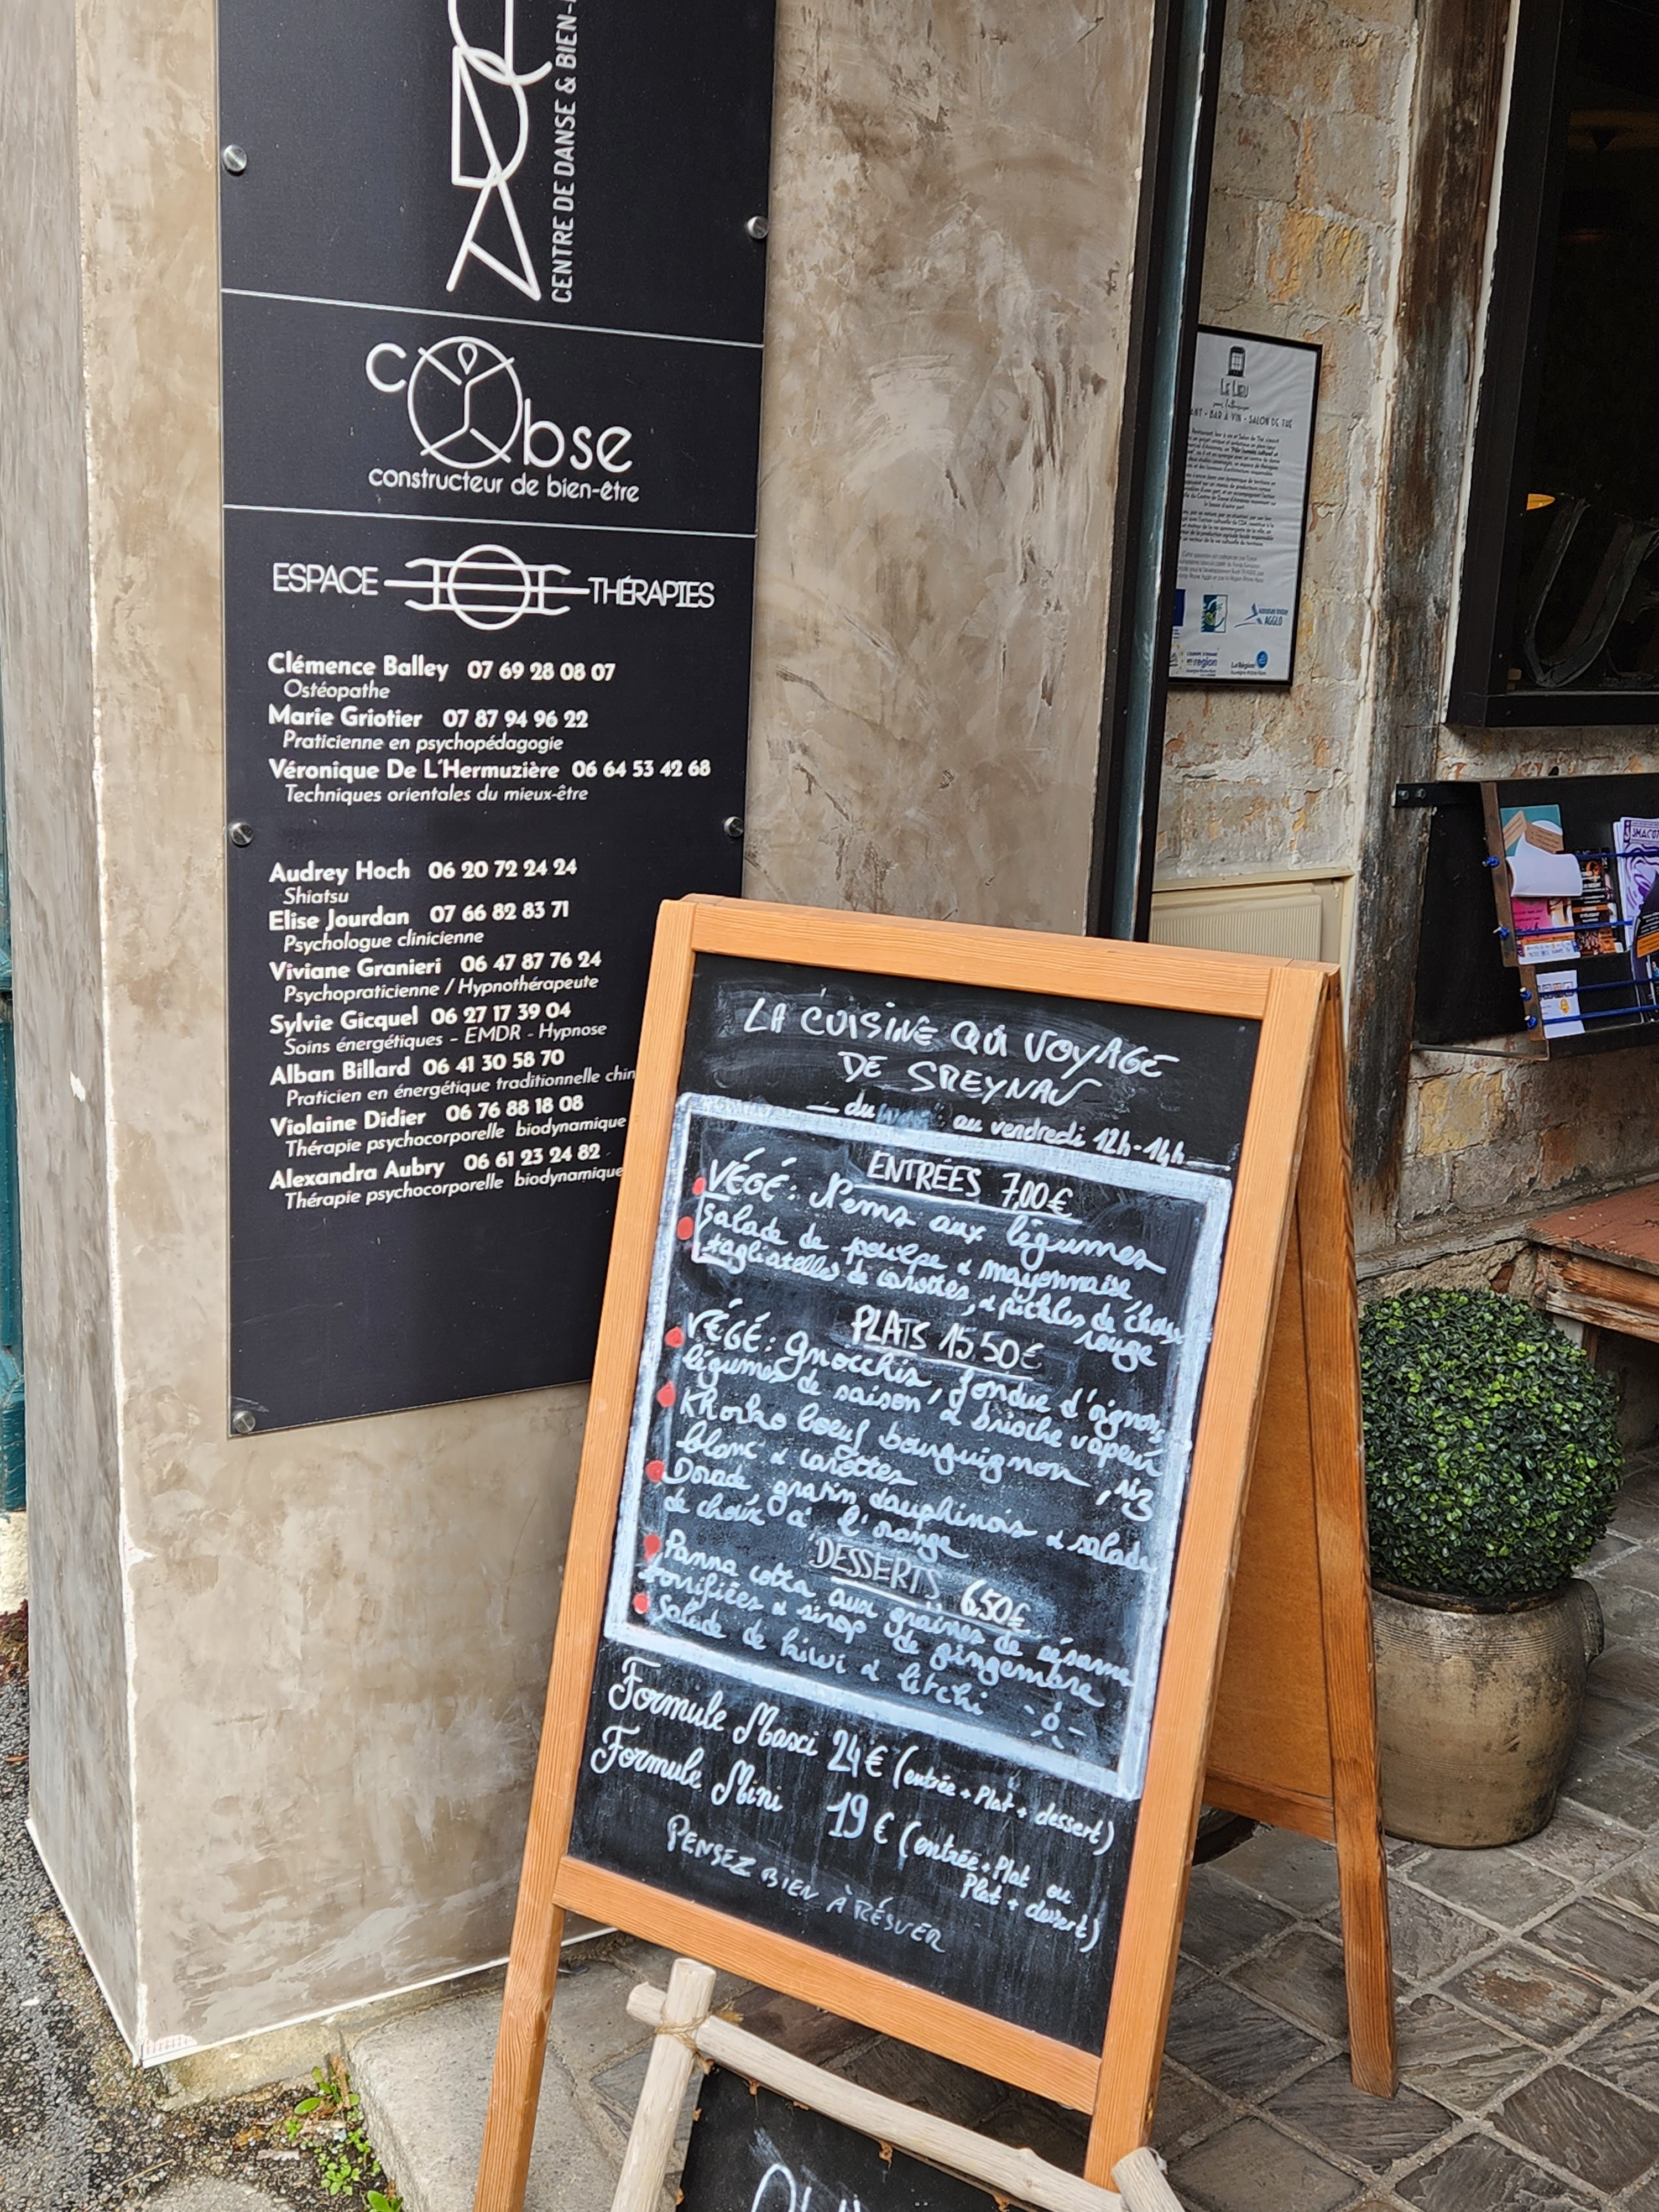 CDA
CENTRE DE DANSE & BIEN-
cobse
constructeur de bien-être
ESPACE THÉRAPIES
Clémence Balley 07 69 28 08 07
Ostéopathe
Marie Griotier 07 87 94 96 22
Praticienne en psychopédagogie
Véronique De L'Hermuzière 06 64 53 42 68
Techniques orientales du mieux-être
Audrey Hoch 06 20 72 24 24
Shiatsu
Elise Jourdan 07 66 82 83 71
Psychologue clinicienne
Viviane Granieri 06 47 87 76 24
Psychopraticienne / Hypnothérapeute
Sylvie Gicquel 06 27 17 39 04
Soins énergétiques - EMDR - Hypnose
Alban Billard 06 41 30 58 70
Praticien en énergétique traditionnelle chin
Violaine Didier 06 76 88 18 08
Thérapie psychocorporelle biodynamique
Alexandra Aubry 06 61 23 24 82
Thérapie psychocorporelle biodynamique
LA CUISINE QUI VOYAGE
DE SREYNAV
du au vendredi 12h-14h
ENTRÉES 7,00€
VÉGÉ: Nems aux légumes
Salade de poulpe & mayonnaise,
tagliatelles de carottes, & pickles de chou
rouge
PLATS 15.50€
VÉGÉ: Gnocchis, fondue d'oignons,
légumes de saison, & brioche vapeur
Khorko boeuf bourguignon, riz
blanc & carottes
Dorade gratin dauphinois & salade
de choux à l'orange
DESSERTS 6.50€
Panna cotta aux graines de sésame
torrifiées & sirop de gingembre
Salade de kiwi & litchi
Formule Maxi 24€ (entrée + Plat + dessert)
Formule Mini 19€ (entrée + Plat ou
Plat + dessert)
PENSEZ BIEN À RÉSVER
LE LIEU
ANT - BAR À VIN - SALON DE THÉ
AGGLO
La Région